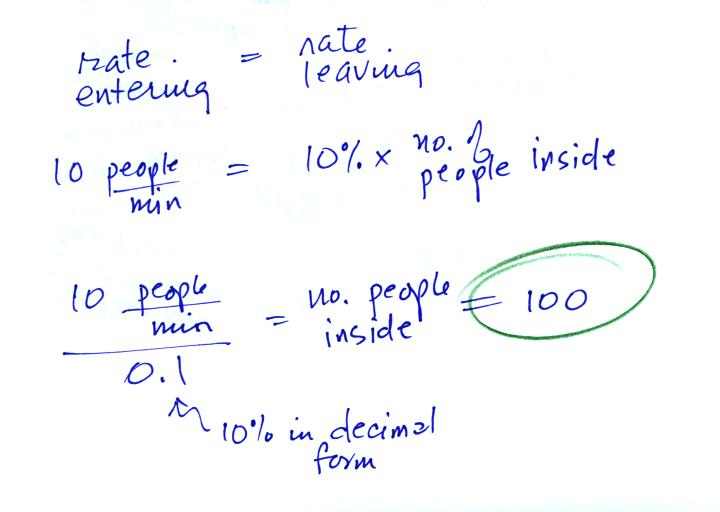 rate entering = rate leaving
10 people/min = 10% x no. of people inside
10 people/min / 0.1 = no. people inside = 100
10% in decimal form